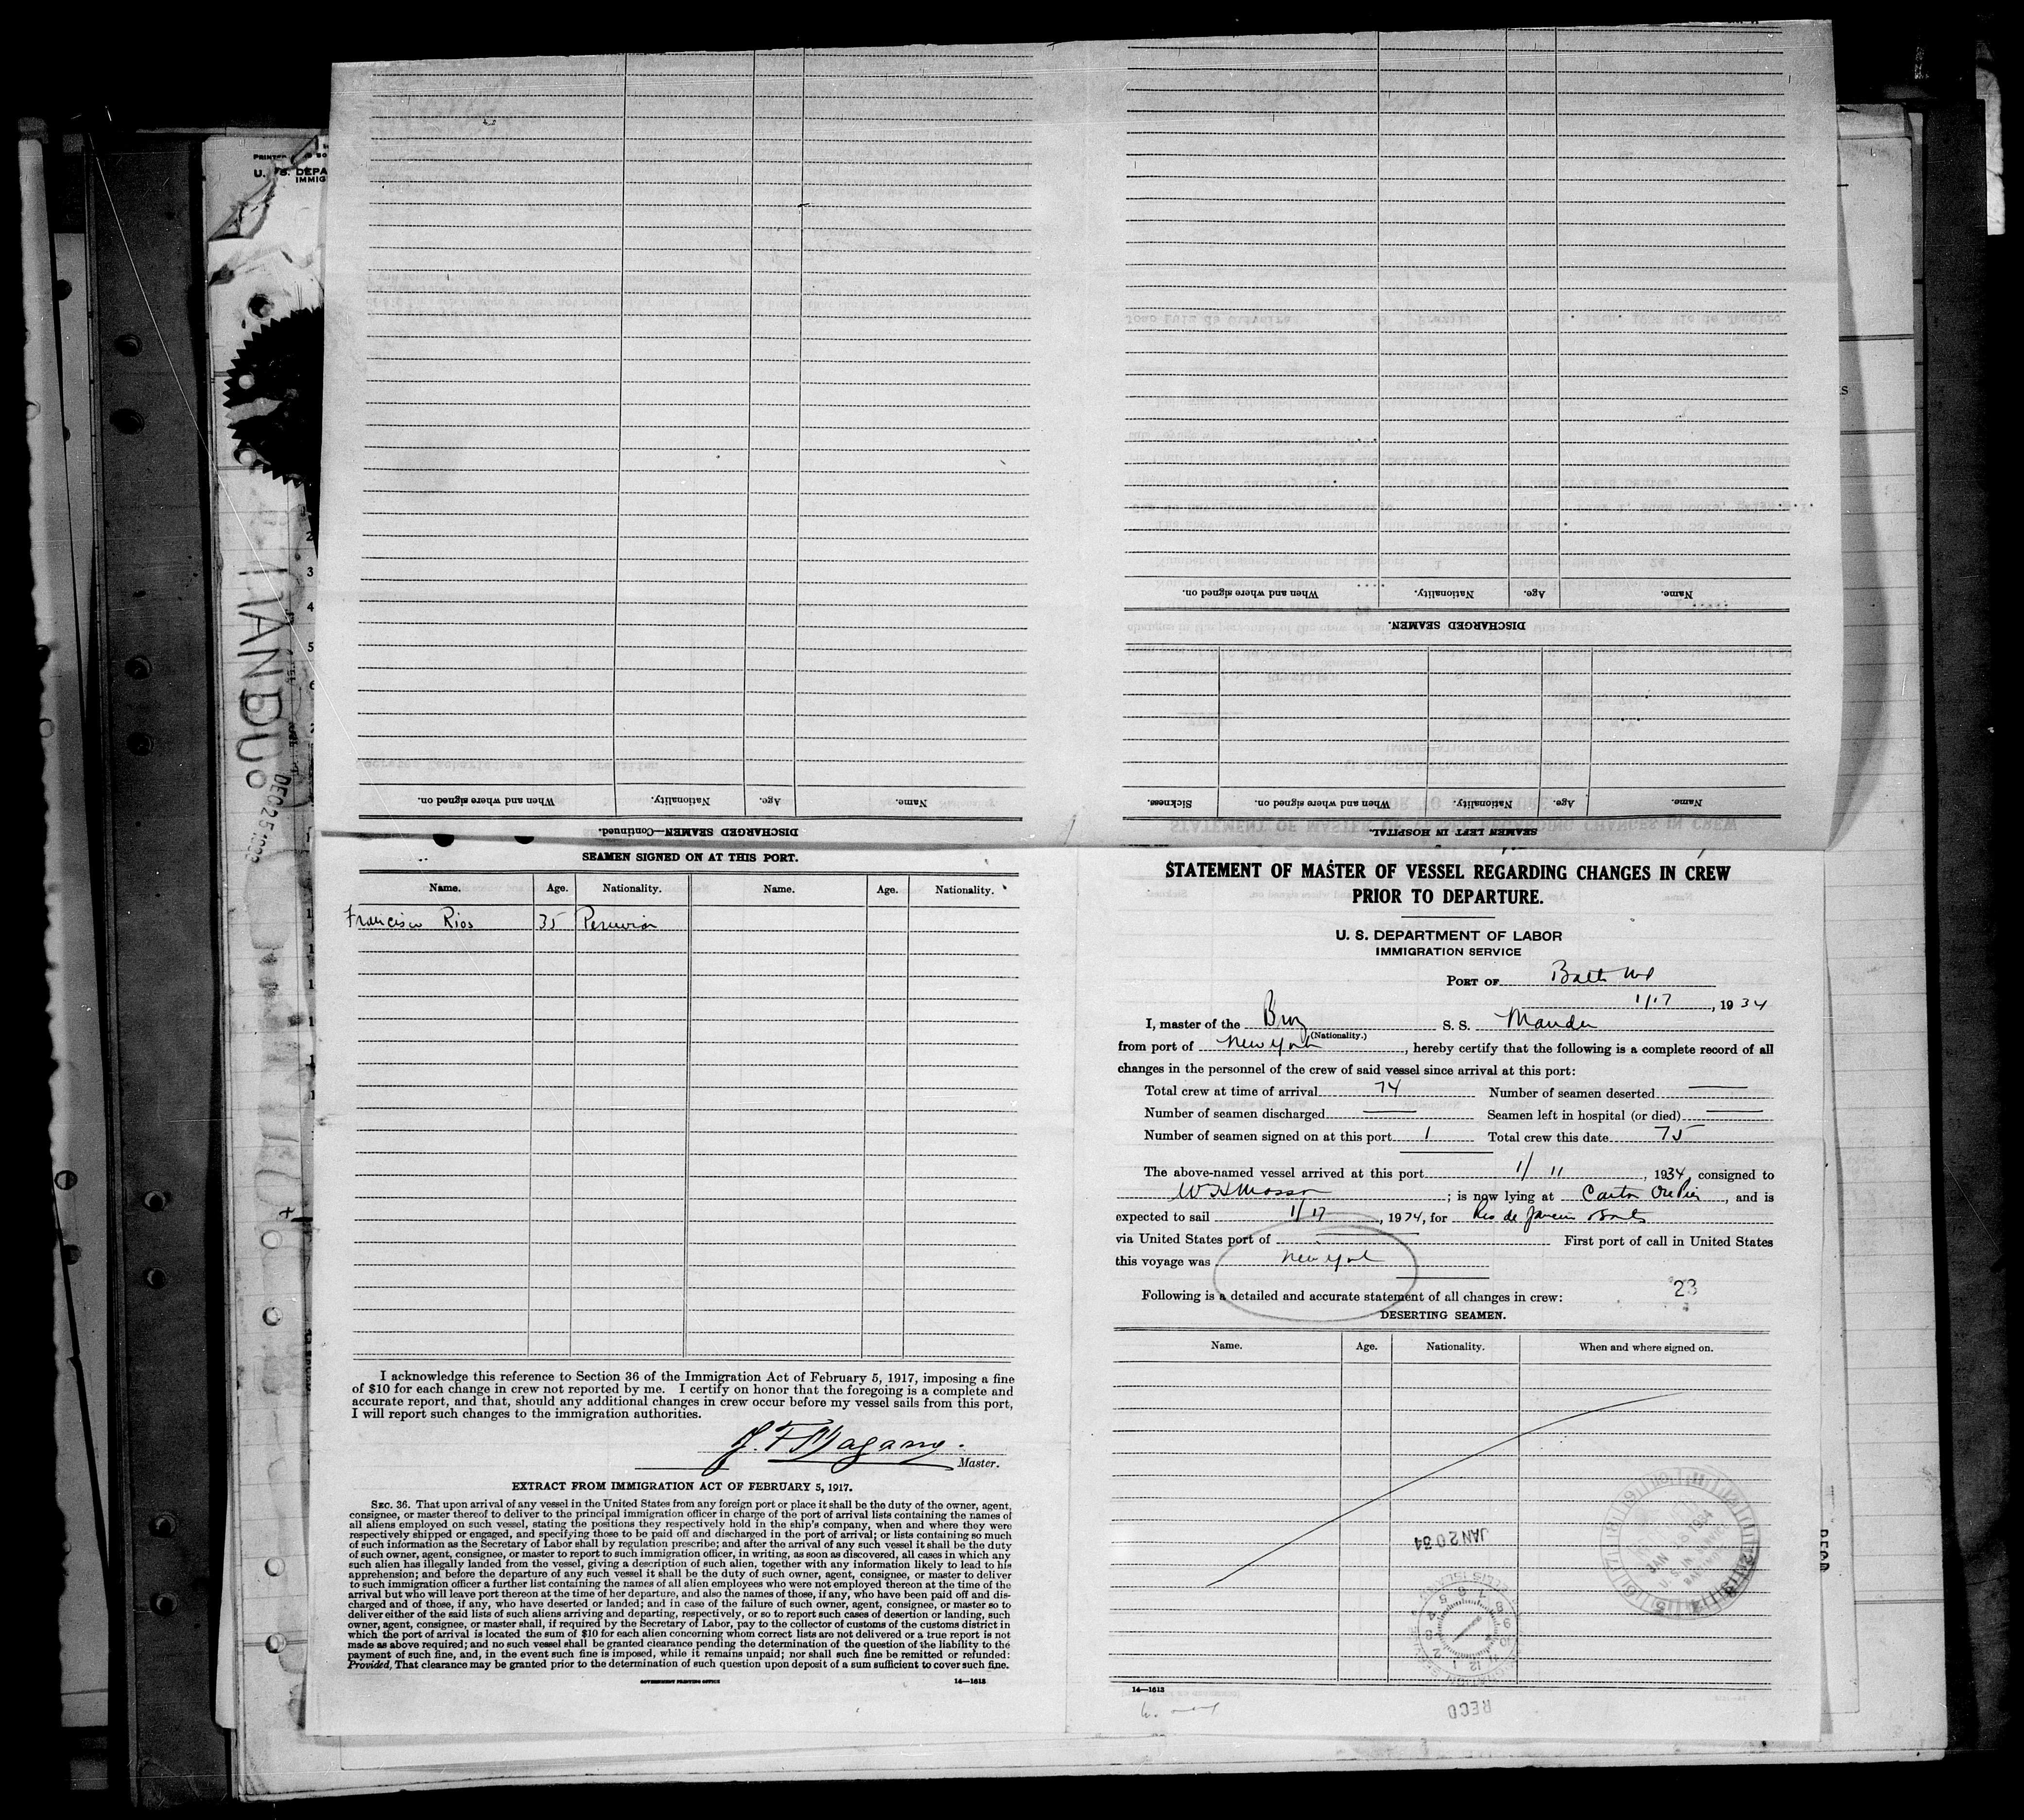 PRINTED
U. S. DEPA
IMMIG
DEC 25
DISCHARGED SEAMEN—Continued.
Name. Age. Nationality. When and where signed on.
SEAMEN LEFT IN HOSPITAL.
Name. Age. Nationality. When and where signed on. Sickness.
DISCHARGED SEAMEN.
Name. Age. Nationality. When and where signed on.
SEAMEN SIGNED ON AT THIS PORT.
Name. Age. Nationality. Name. Age. Nationality.
Francisco Rios 35 Peruvian
I acknowledge this reference to Section 36 of the Immigration Act of February 5, 1917, imposing a fine
of $10 for each change in crew not reported by me. I certify on honor that the foregoing is a complete and
accurate report, and that, should any additional changes in crew occur before my vessel sails from this port,
I will report such changes to the immigration authorities.
Master.
EXTRACT FROM IMMIGRATION ACT OF FEBRUARY 5, 1917.
SEC. 36. That upon arrival of any vessel in the United States from any foreign port or place it shall be the duty of the owner, agent,
consignee, or master thereof to deliver to the principal immigration officer in charge of the port of arrival lists containing the names of
all aliens employed on such vessel, stating the positions they respectively hold in the ship's company, when and where they were
respectively shipped or engaged, and specifying those to be paid off and discharged in the port of arrival; or lists containing so much
of such information as the Secretary of Labor shall by regulation prescribe; and after the arrival of any such vessel it shall be the duty
of such owner, agent, consignee, or master to report to such immigration officer, in writing, as soon as discovered, all cases in which any
such alien has illegally landed from the vessel, giving a description of such alien, together with any information likely to lead to his
apprehension; and before the departure of any such vessel it shall be the duty of such owner, agent, consignee, or master to deliver
to such immigration officer a further list containing the names of all alien employees who were not employed thereon at the time of the
arrival but who will leave port thereon at the time of her departure, and also the names of those, if any, who have been paid off and dis-
charged and of those, if any, who have deserted or landed; and in case of the failure of such owner, agent, consignee, or master so to
deliver either of the said lists of such aliens arriving and departing, respectively, or so to report such cases of desertion or landing, such
owner, agent, consignee, or master shall, if required by the Secretary of Labor, pay to the collector of customs of the customs district in
which the port of arrival is located the sum of $10 for each alien concerning whom correct lists are not delivered or a true report is not
made as above required; and no such vessel shall be granted clearance pending the determination of the question of the liability to the
payment of such fine, and, in the event such fine is imposed, while it remains unpaid; nor shall such fine be remitted or refunded:
Provided, That clearance may be granted prior to the determination of such question upon deposit of a sum sufficient to cover such fine.
GOVERNMENT PRINTING OFFICE 14—1613
STATEMENT OF MASTER OF VESSEL REGARDING CHANGES IN CREW
PRIOR TO DEPARTURE.
U. S. DEPARTMENT OF LABOR
IMMIGRATION SERVICE
PORT OF Balto Md
1/17, 1934
I, master of the Braz S. S. Mandu
(Nationality.)
from port of New York, hereby certify that the following is a complete record of all
changes in the personnel of the crew of said vessel since arrival at this port:
Total crew at time of arrival 74 Number of seamen deserted
Number of seamen discharged Seamen left in hospital (or died)
Number of seamen signed on at this port 1 Total crew this date 75
The above-named vessel arrived at this port 1/11, 1934, consigned to
W H Masson; is now lying at Canton Ore Pier, and is
expected to sail 1/17, 1934, for Rio de Janeiro Santos
via United States port of First port of call in United States
this voyage was New York
Following is a detailed and accurate statement of all changes in crew:
23
DESERTING SEAMEN.
Name. Age. Nationality. When and where signed on.
JAN 20 34
RECD
14—1613